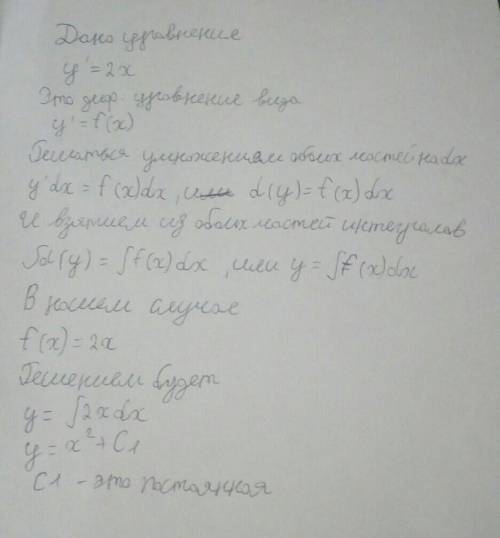 Дано уравнение
y' = 2x
Это диф. уравнение вида
y' = f(x)
Решаться умножениям обоих частей на dx
y'dx = f(x)dx, или d(y) = f(x)dx
И взятием из обоих частей интегралов
∫d(y) = ∫f(x)dx, или y = ∫f(x)dx
В нашем случае
f(x) = 2x
Решением будет
y = ∫2xdx
y = x² + C1
C1 - это постоянная